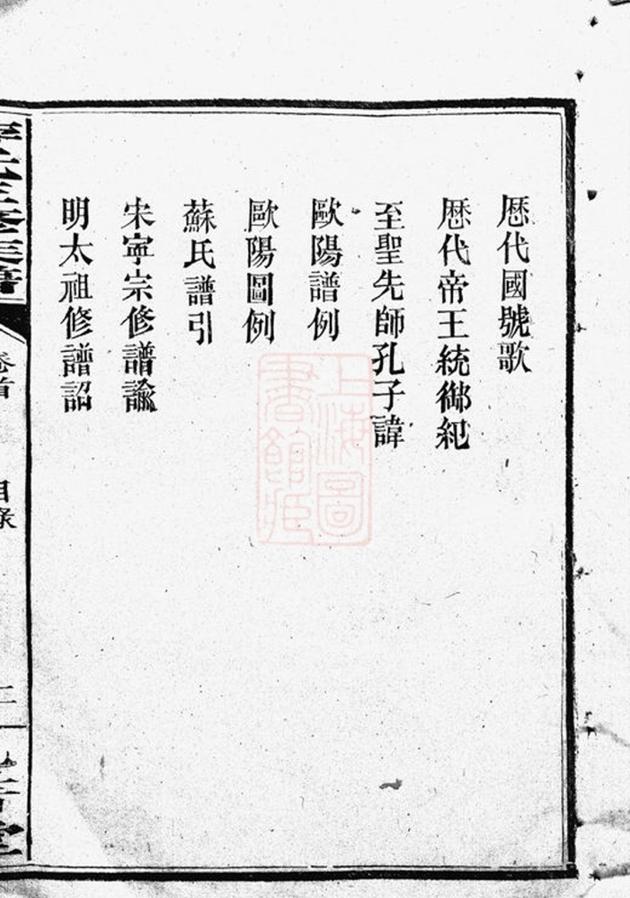 歷代國號歌
歷代帝王統御紀
至聖先師孔子諱
歐陽譜例
歐陽圖例
蘇氏譜引
宋寧宗修譜諭
明太祖修譜詔
卷首
目錄
上海圖
書館藏